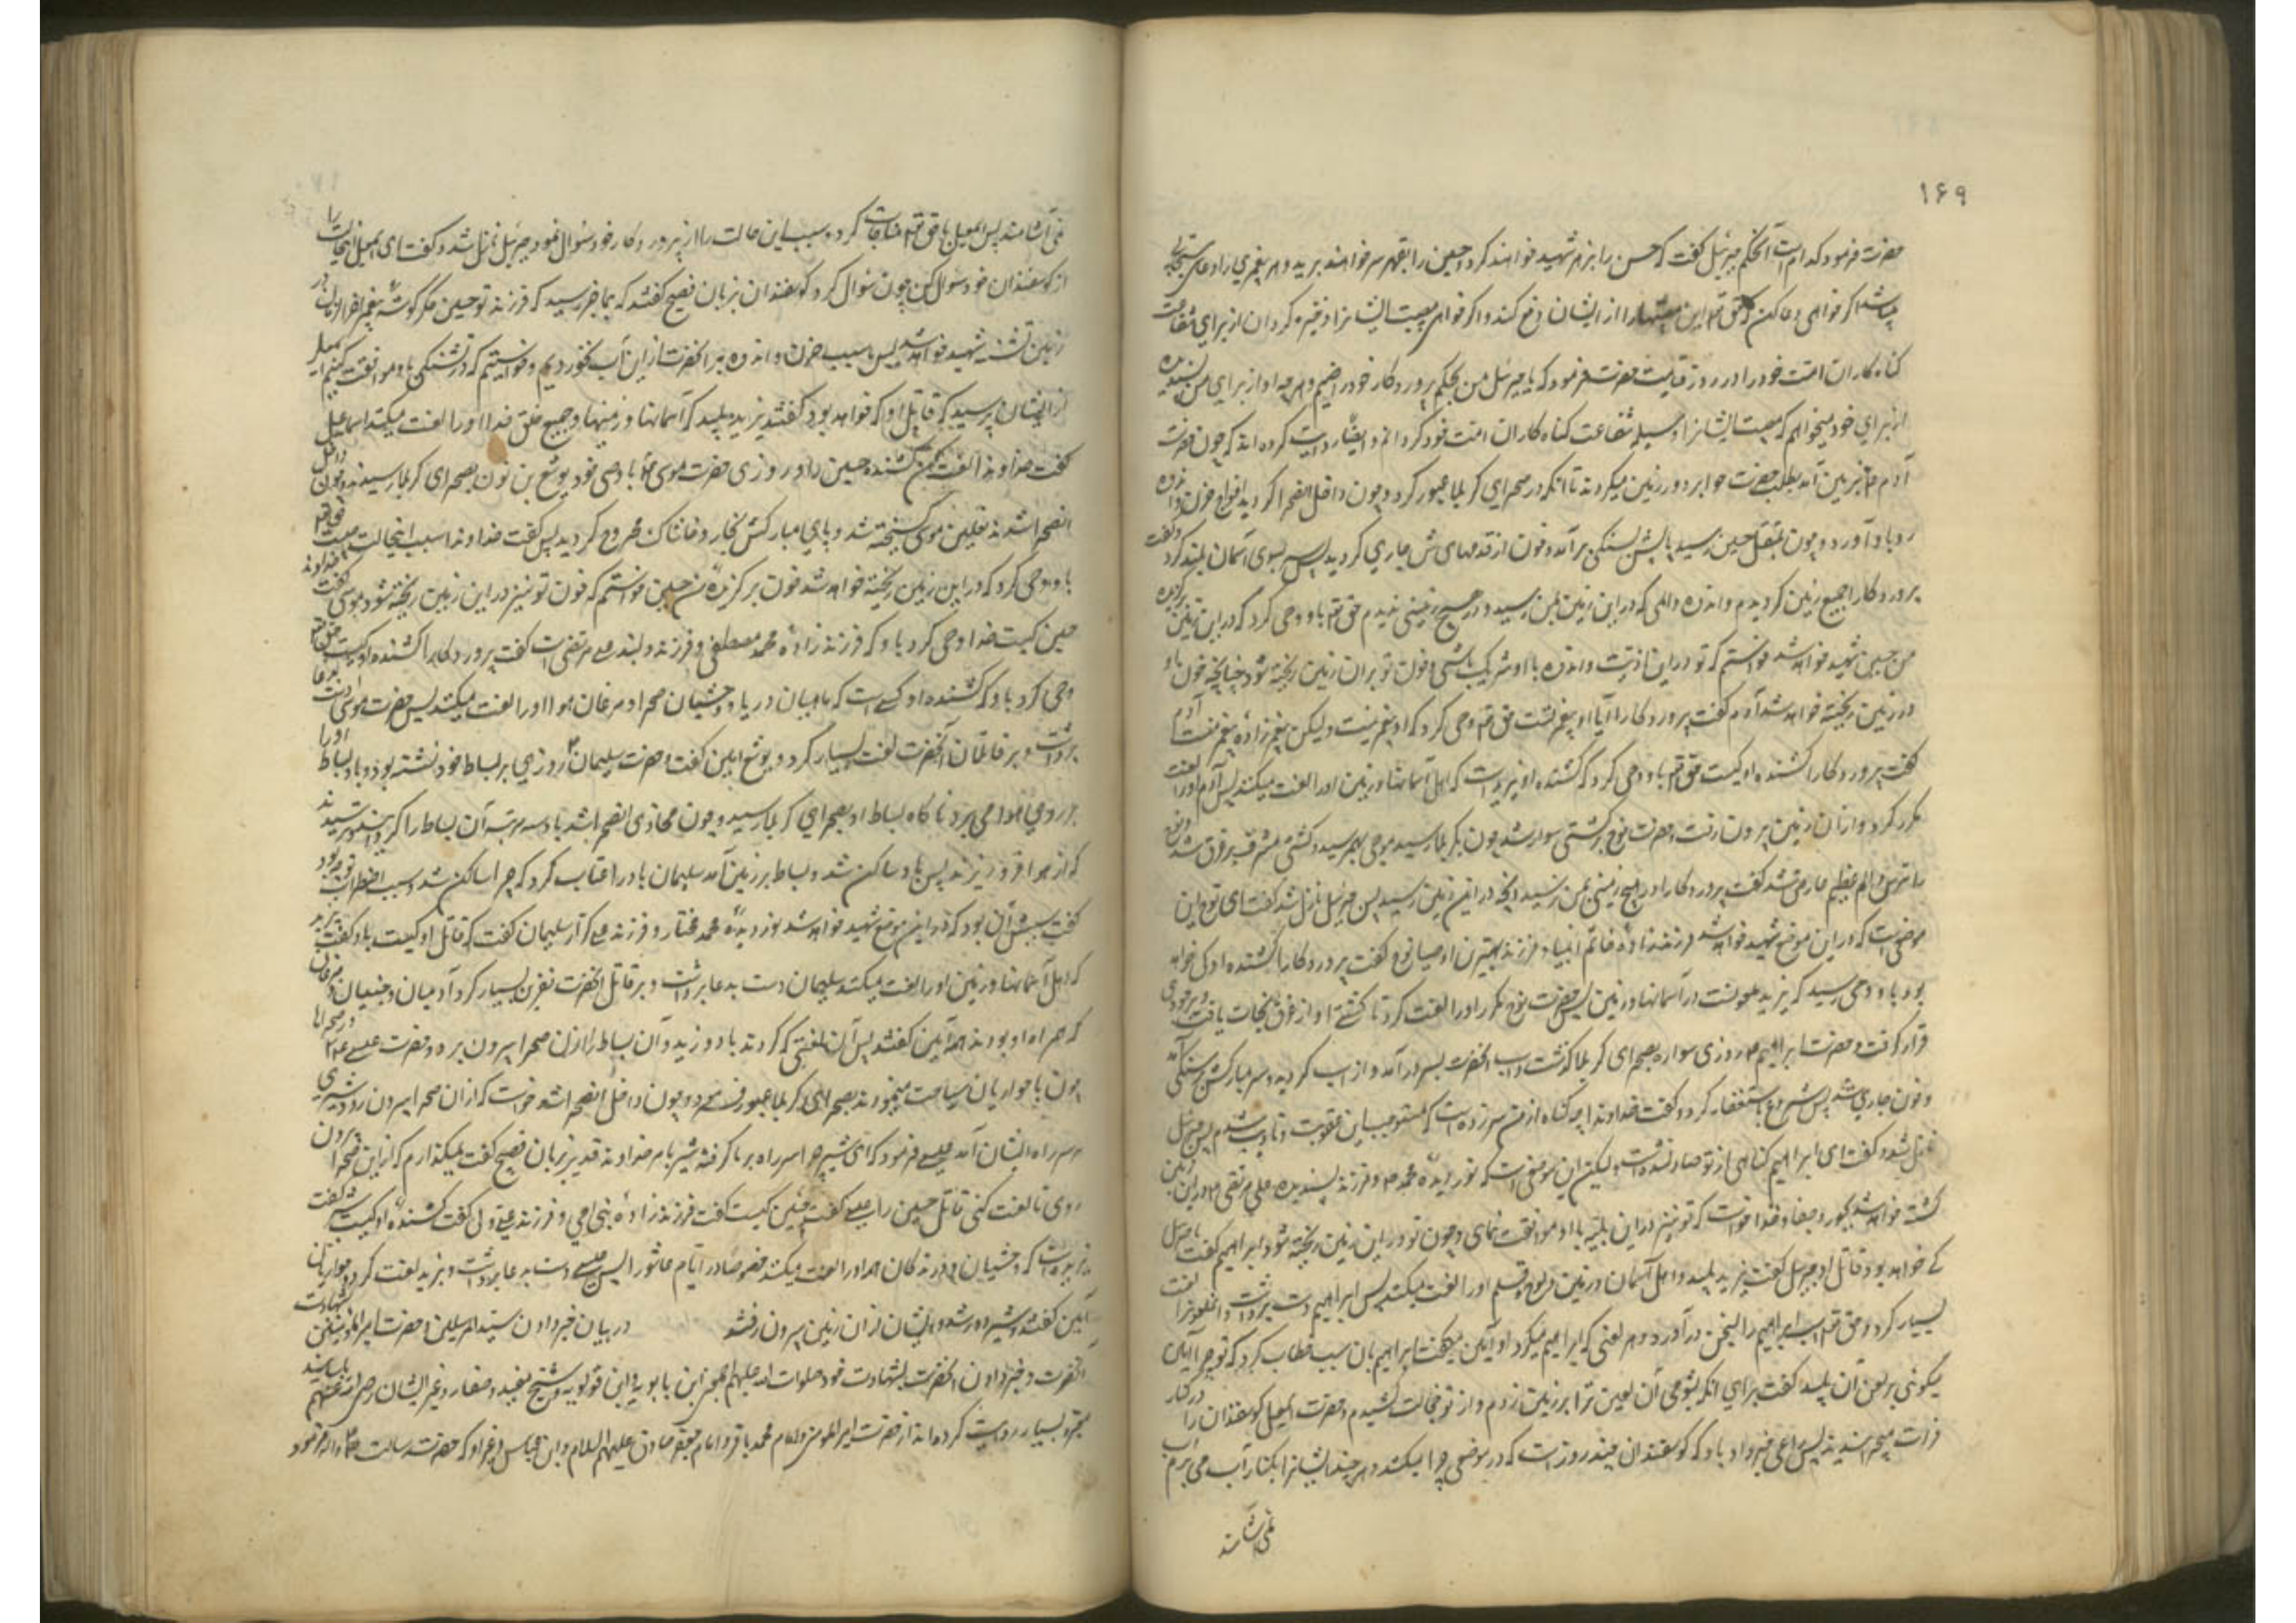 ۱۶۹
حضرت فرمود که کدام است آنحکم جبرئیل گفت که حسن را بزهر شهید خواهند کرد و حسین را بقهر سر خواهند برید و هر پیغمبری را دعای مستجابی
میباشد اگر خواهی دعا کن که حق تع این مصیبتها را از ایشان دفع کند و اگر خواهی مصیبت ایشانرا ذخیره گردان از برای شفاعت
کناه کاران امت خود را در روز قیامت حضرت فرمود که یا جبرئیل من بحکم پرورد کار خود راضیم و هر چه او از برای من پسندیده
از برای خود میخواهم که مصیبت ایشانرا وسیله شفاعت کناه کاران امت خود کردانم و ایضا روایت کرده اند که چون حضرت
آدم ع بزمین آمد بطلب حضرت حوا بر دور زمین میکردید تا آنکه در صحرای کربلا عبور کرد و چون داخل انصحرا کردید افواج حزن و اندوه
رو باو آورد و چون بمقتل حسین رسید پایش بسنکی برآمد و خون از قدمهایش جاری کردید پس سر بسوی آسمان بلند کرد و گفت
پرورد کارا جمیع زمین کردیدم و اندوه و المی که در این زمین بمن رسید در هیچ زمینی ندیدم حق تع باو وحی کرد که در این زمین برگزیده
من حسین شهید خواهد شد خواستم که تو در این اذیت و اندوه با او شریک باشی و خون تو بر ان زمین ریخته شود چنانچه خون او
در زمین ریخته خواهد شد آدم گفت پرورد کارا آیا او پیغمبر است حق تع وحی کرد که او پیغمبر نیست ولیکن پیغمبر زاده پیغمبر منست آدم
گفت پرورد کارا کشنده او کیست حق تع باو وحی کرد که کشنده او یزید است که اهل آسمانها و زمین او را لعنت میکنند پس آدم او را لعنت
مکرر کرد و از ان زمین بیرون رفت و حضرت نوح بر کشتی سوار شد چون بکربلا رسید موجی بهم رسید و کشتی مشرف بر غرق شد و نوح
را ترسی و الم عظیم عارض شد گفت پرورد کارا در هیچ زمینی بمن نرسید آنچه در این زمین رسید پس جبرئیل نازل شد گفت ای نوح این
موضعی است که در این موضع شهید خواهد شد فرزند زاده خاتم انبیا و فرزند بهترین اوصیا نوح گفت پرورد کارا کشنده او کی خواهد
بود باو وحی رسید که یزید ملعونست در آسمانها و زمین پس حضرت نوح مکرر او را لعنت کرد تا کشتی او از غرق نجات یافت و بر جودی
قرار گرفت و حضرت ابراهیم ع روزی سواره بصحرای کربلا گذشت و اسب آنحضرت بسر درآمد و از اسب کردید و سر مبارکش بسنکی آمد
و خون جاری شد پس شروع باستغفار کرد و گفت خداوندا چه کناه از من سر زده است که مستوجب این عقوبت و تادیب شدم پس جبرئیل
نازل شد و گفت ای ابراهیم کناهی از تو صادر نشده است ولیکن این موضعی است که نور دیده محمد ص و فرزند پسندیده علی مرتضی ع در این زمین
کشته خواهد شد بجور و جفا و خدا خواست که تو نیز در این بلیه با او موافقت نمائی و خون تو در این زمین ریخته شود ابراهیم گفت یا جبرئیل
که خواهد بود قاتل او جبرئیل گفت یزید پلید و اهل آسمان و زمین و لوح و قلم او را لعنت میکنند پس ابراهیم دست برداشت و آنملعونرا لعنت
بسیار کرد و حق تع اسب ابراهیم را بسخن درآورد و هر لعنی که ابراهیم میکرد او آمین میگفت ابراهیم بان اسب خطاب کرد که تو چرا آمین
میکوئی بر لعن آن پلید گفت برای آنکه بشومی آن لعین ترا بر زمین زدم و از تو خجالت کشیدم و حضرت اسمعیل کوسفندان را در کنار
فرات میچرانید پس راعی خبر داد باو که کوسفندان چند روز است که در موضعی چرا میکنند و هر چند ایشانرا بکنار آب می بریم آب
نمی آشامند
نمی آشامند پس اسمعیل با حق تع مناجات کرد و سبب این حالت را از پرورد کار خود سؤال نمود جبرئیل نازل شد و گفت ای اسمعیل اینحالت را
از کوسفندان خود سؤال کن چون سؤال کرد کوسفندان بزبان فصیح گفتند که بما خبر رسید که فرزند تو حسین جگر گوشه پیغمبر آخر الزمان در این
زمین تشنه شهید خواهد شد پس ما بسبب حزن و اندوه بر آنحضرت از این آب نخوردیم و خواستیم که در تشنکی با او موافقت کنیم اسمعیل
از ایشان پرسید که قاتل او که خواهد بود گفتند یزید پلید که آسمانها و زمینها و جمیع خلق خدا او را لعنت میکنند اسماعیل
گفت خداوندا لعنت کن کشنده حسین را و روزی حضرت موسی ع با وصی خود یوشع بن نون بصحرای کربلا رسیدند و چون داخل
انصحرا شدند نعلین موسی کسیخته شد و پای مبارکش بخار و خاشاک مجروح کردید پس گفت خداوندا سبب اینحالت چیست حق تع
باو وحی کرد که در این زمین ریخته خواهد شد خون برگزیده من حسین خواستم که خون تو نیز در این زمین ریخته شود موسی گفت خداوندا
حسین کیست خدا وحی کرد باو که فرزند زاده محمد مصطفی و فرزند دلبند علی مرتضی است گفت پرورد کارا کشنده او کیست حق تع
وحی کرد باو که کشنده او کسی است که ماهیان دریا و وحشیان صحرا و مرغان هوا او را لعنت میکنند پس حضرت موسی دست بدعا
برداشت و بر قاتلان آنحضرت لعنت بسیار کرد و یوشع امین گفت و حضرت سلیمان ع روزی بر بساط خود نشسته بود و باد بساط او را
بر روی هوا می برد ناگاه بساط او بصحرای کربلا رسید و چون محاذی انصحرا شد باد سه مرتبه آن بساط را کردانید و ترسیدند
که از هوا فرو ریزند پس باد ساکن شد و بساط بر زمین آمد سلیمان باد را عتاب کرد که چرا ساکن شد و سبب اضطراب تو چه بود
گفت سببش آن بود که در این موضع شهید خواهد شد نور دیده محمد مختار و فرزند علی کرار سلیمان گفت که قاتل او کیست باد گفت یزید
که اهل آسمانها و زمین او را لعنت میکنند سلیمان دست بدعا برداشت و بر قاتل آنحضرت نفرین بسیار کرد آدمیان و جنیان و مرغان
که همراه او بودند همه آمین گفتند پس آن لعنتی که کردند باد وزید و آن بساط را از ان صحرا بیرون برد و حضرت عیسی ع در صحراها
چون با حواریان سیاحت مینمودند بصحرای کربلا عبور فرمود و چون داخل انصحرا شد خواست که از ان صحرا بیرون رود شیری
بر سر راه ایشان آمد عیسی فرمود که ای شیر چرا سر راه بر ما گرفته شیر بامر خداوند قدیر بزبان فصیح گفت نمیگذارم که از این صحرا بیرون
روی تا لعنت کنی قاتل حسین را عیسی گفت حسین کیست گفت فرزند زاده نبی امی و فرزند علی ولی گفت کشنده او کیست شیر گفت
یزید است که وحشیان و درندگان همه او را لعنت میکنند خصوصا در ایام عاشورا پس عیسی دست بدعا برداشت و یزید لعنت کرد و حواریان
آمین گفتند و شیر دور شد و ایشان از ان زمین بیرون رفتند در بیان خبر دادن سید المرسلین و حضرت امیر المؤمنین بشهادت
آنحضرت و خبر دادن آنحضرت بشهادت خود صلوات الله علیهم اجمعین ابن بابویه و ابن قولویه و شیخ مفید و صفار و غیر ایشان رضی الله عنهم باسانید
معتبره بسیار روایت کرده اند از حضرت امیر المؤمنین و امام محمد باقر و امام جعفر صادق علیهم السلام و ابن عباس و غیر او که حضرت رسالت صلی الله علیه و آله فرمود